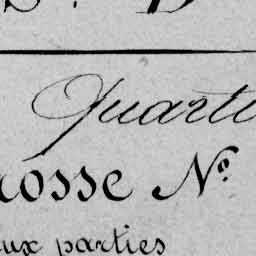 Quarti
rosse Nº
ux parties